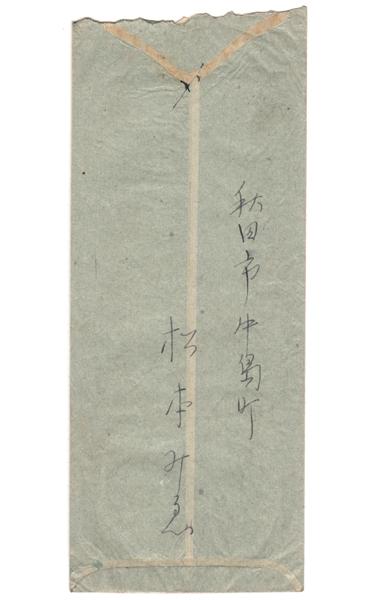 秋田市中島町
松本み恵